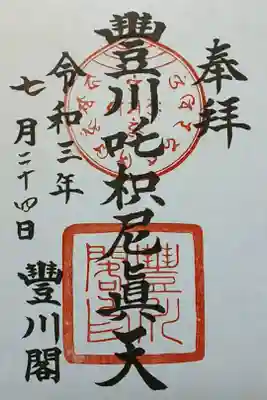 奉拝
豐川吒枳尼眞天
令和三年
七月二十四日
豐川閣